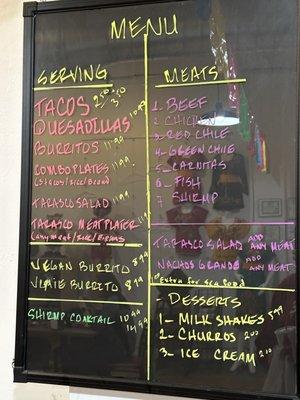 MENU
SERVING
TACOS 2.50 3.50
QUESADILLAS 10.99
BURRITOS 11.99
COMBO PLATES 11.99
TARASCO SALAD 11.99
TARASCO MEAT PLATER
(any meat/rice/Beans
VEGAN BURRITO 8.99
VEGIE BURRITO 8.99
SHRIMP COAKTAIL 10.99
14.99
MEATS
1. BEEF
2. CHICKEN
3. RED CHILE
4. GREEN CHILE
5. CARNITAS
6. FISH
7 SHRIMP
TARASCO SALAD ADD ANY MEAT
NACHOS GRANDE ADD ANY MEAT
Extra for Sea Food
- DESSERTS
1- MILK SHAKES 5.99
2- CHURROS 2.00
3- ICE CREAM 2.10